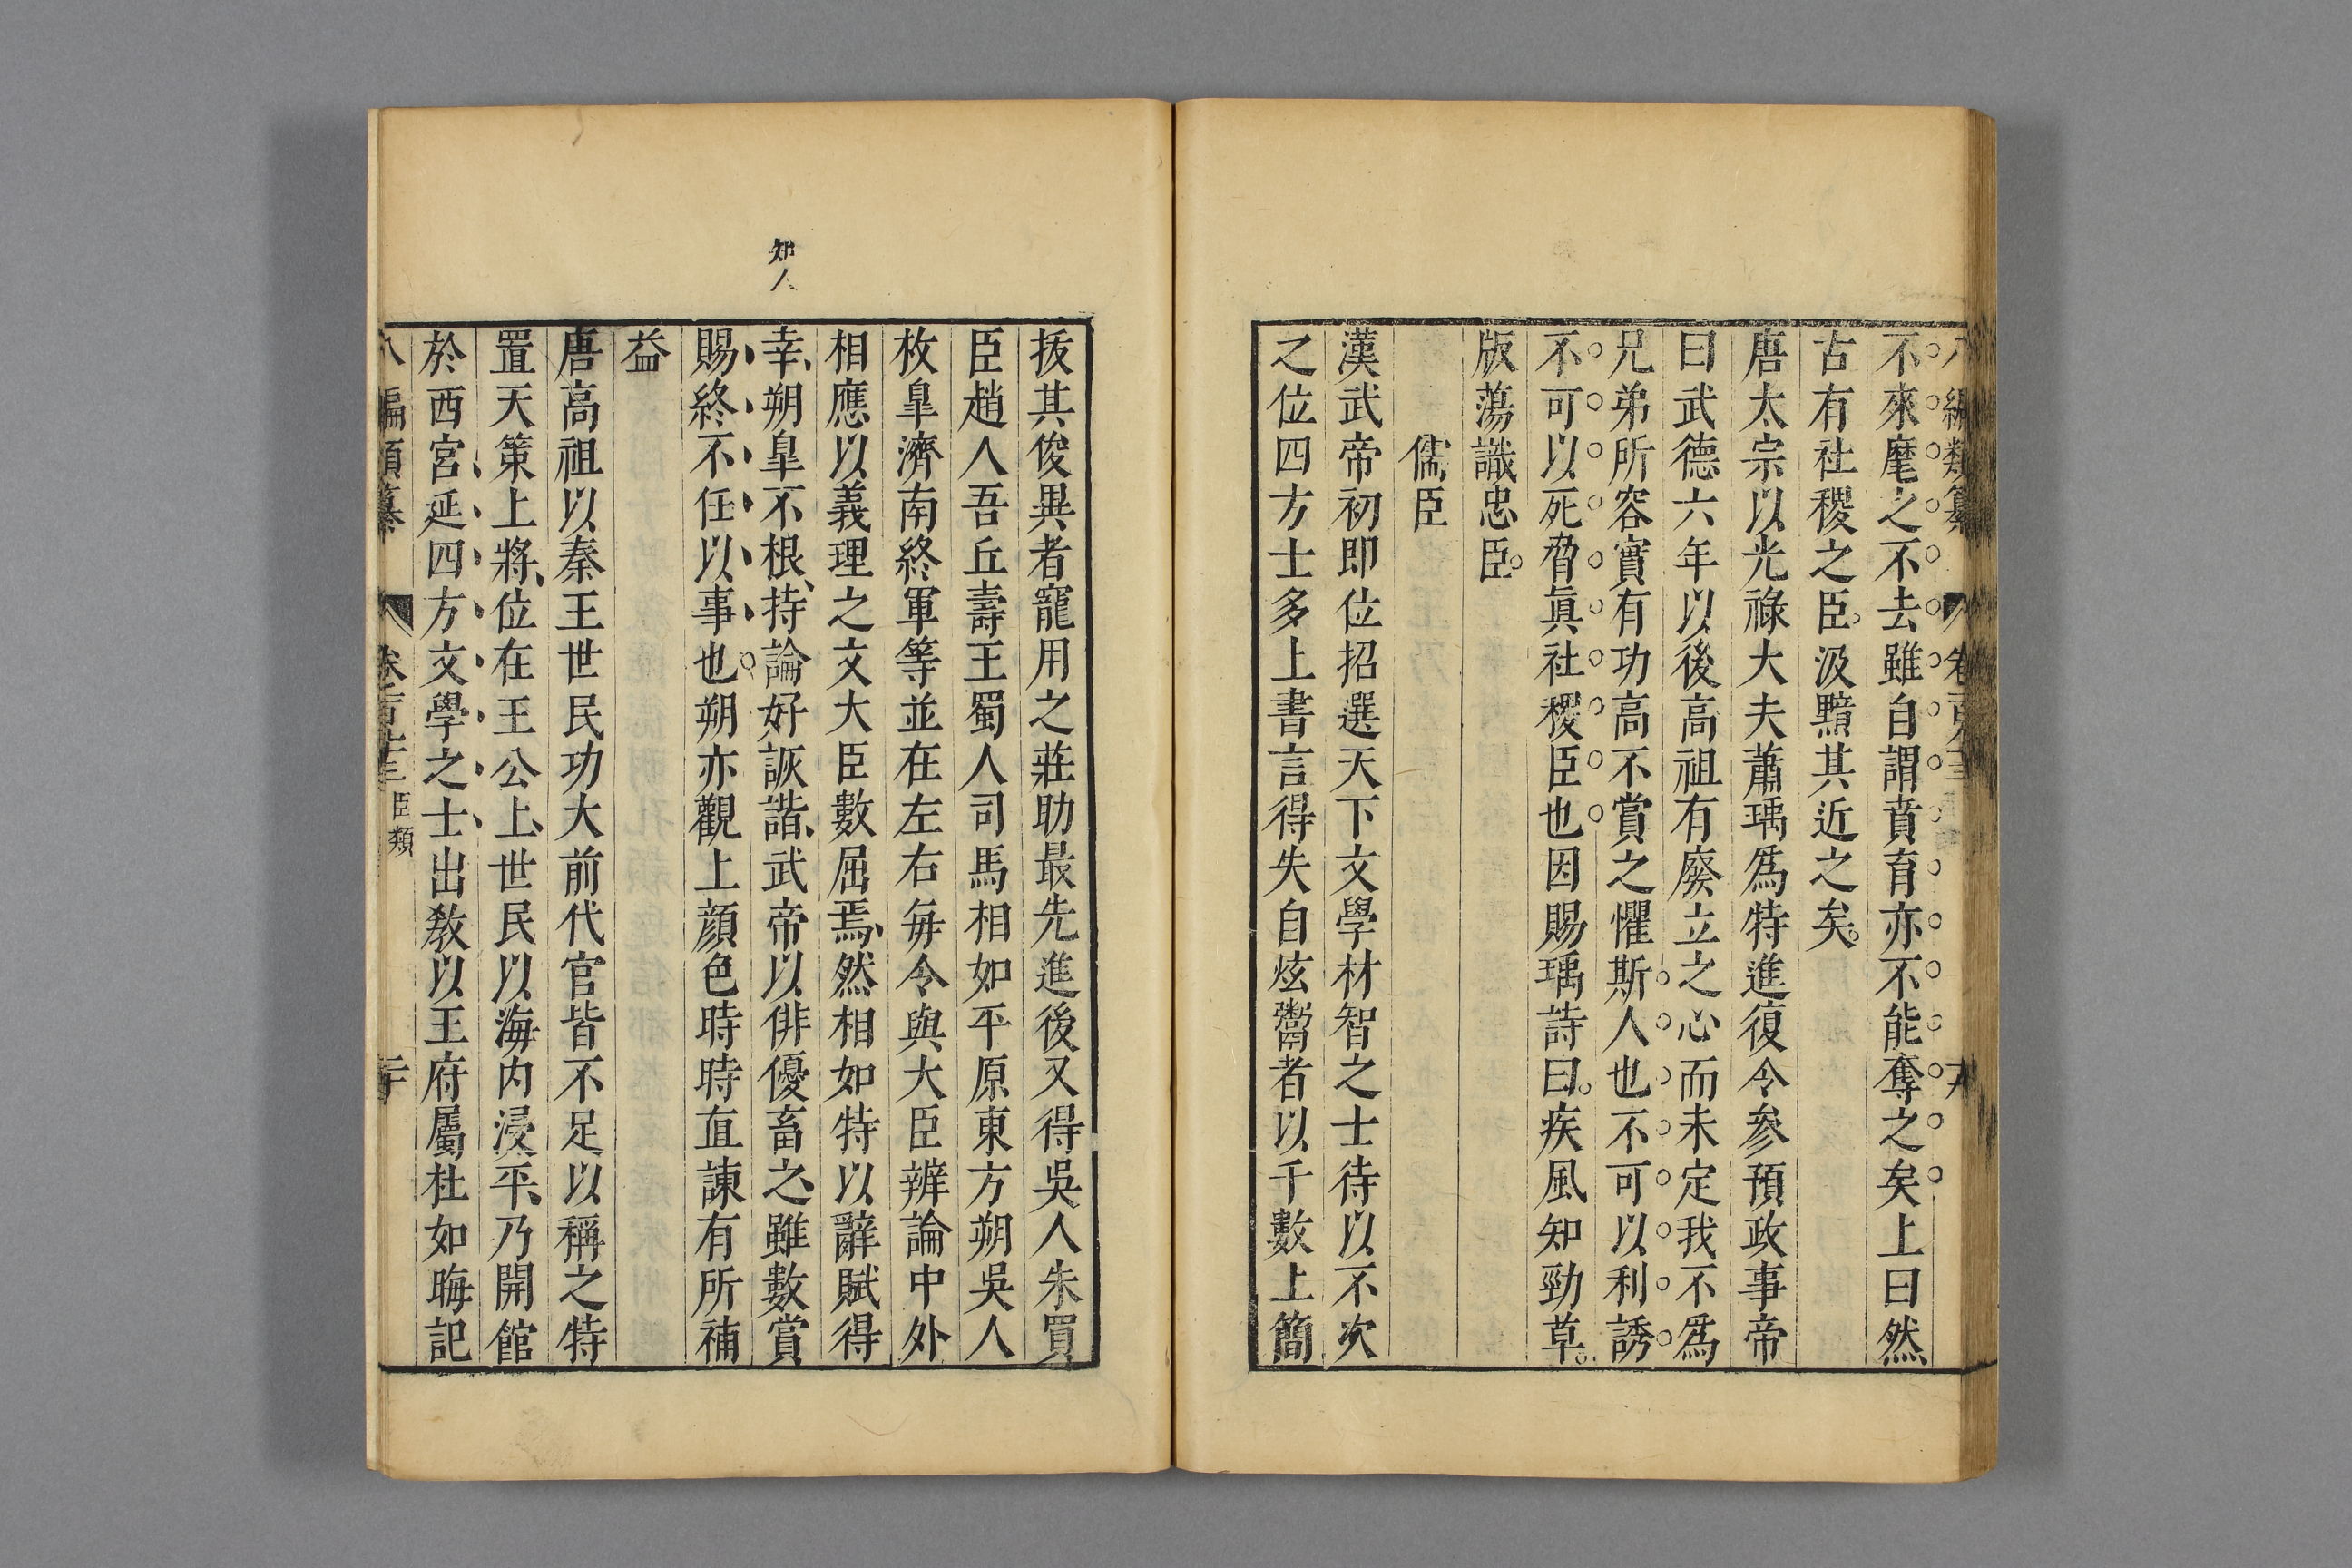 不來麾之不去雖自謂賁育亦不能奪之矣上曰然
古有社稷之臣汲黯其近之矣
唐太宗以光祿大夫蕭瑀爲特進復令參預政事帝
曰武德六年以後高祖有廢立之心而未定我不爲
兄弟所容實有功高不賞之懼斯人也不可以利誘
不可以死脅眞社稷臣也因賜瑀詩曰疾風知勁草
版蕩識忠臣
儒臣
漢武帝初即位招選天下文學材智之士待以不次
之位四方士多上書言得失自炫鬻者以千數上簡
拔其俊異者寵用之莊助最先進後又得吳人朱買
臣趙人吾丘壽王蜀人司馬相如平原東方朔吳人
枚臯濟南終軍等並在左右每令與大臣辨論中外
相應以義理之文大臣數屈焉然相如特以辭賦得
幸朔臯不根持論好詼諧武帝以俳優畜之雖數賞
賜終不任以事也朔亦觀上顔色時時直諫有所補
益
知人
唐高祖以秦王世民功大前代官皆不足以稱之特
置天策上將位在王公上世民以海內浸平乃開館
於西宮延四方文學之士出教以王府屬杜如晦記
八編類纂 卷 臣類